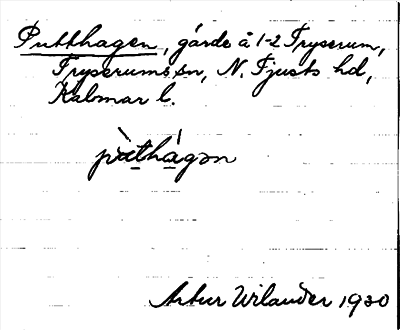 Putthagen, gärde å 1-2 Tryserum,
Tryserums sn, N. Tjusts hd,
Kalmar l.
pùthágən
Artur Wilander 1930